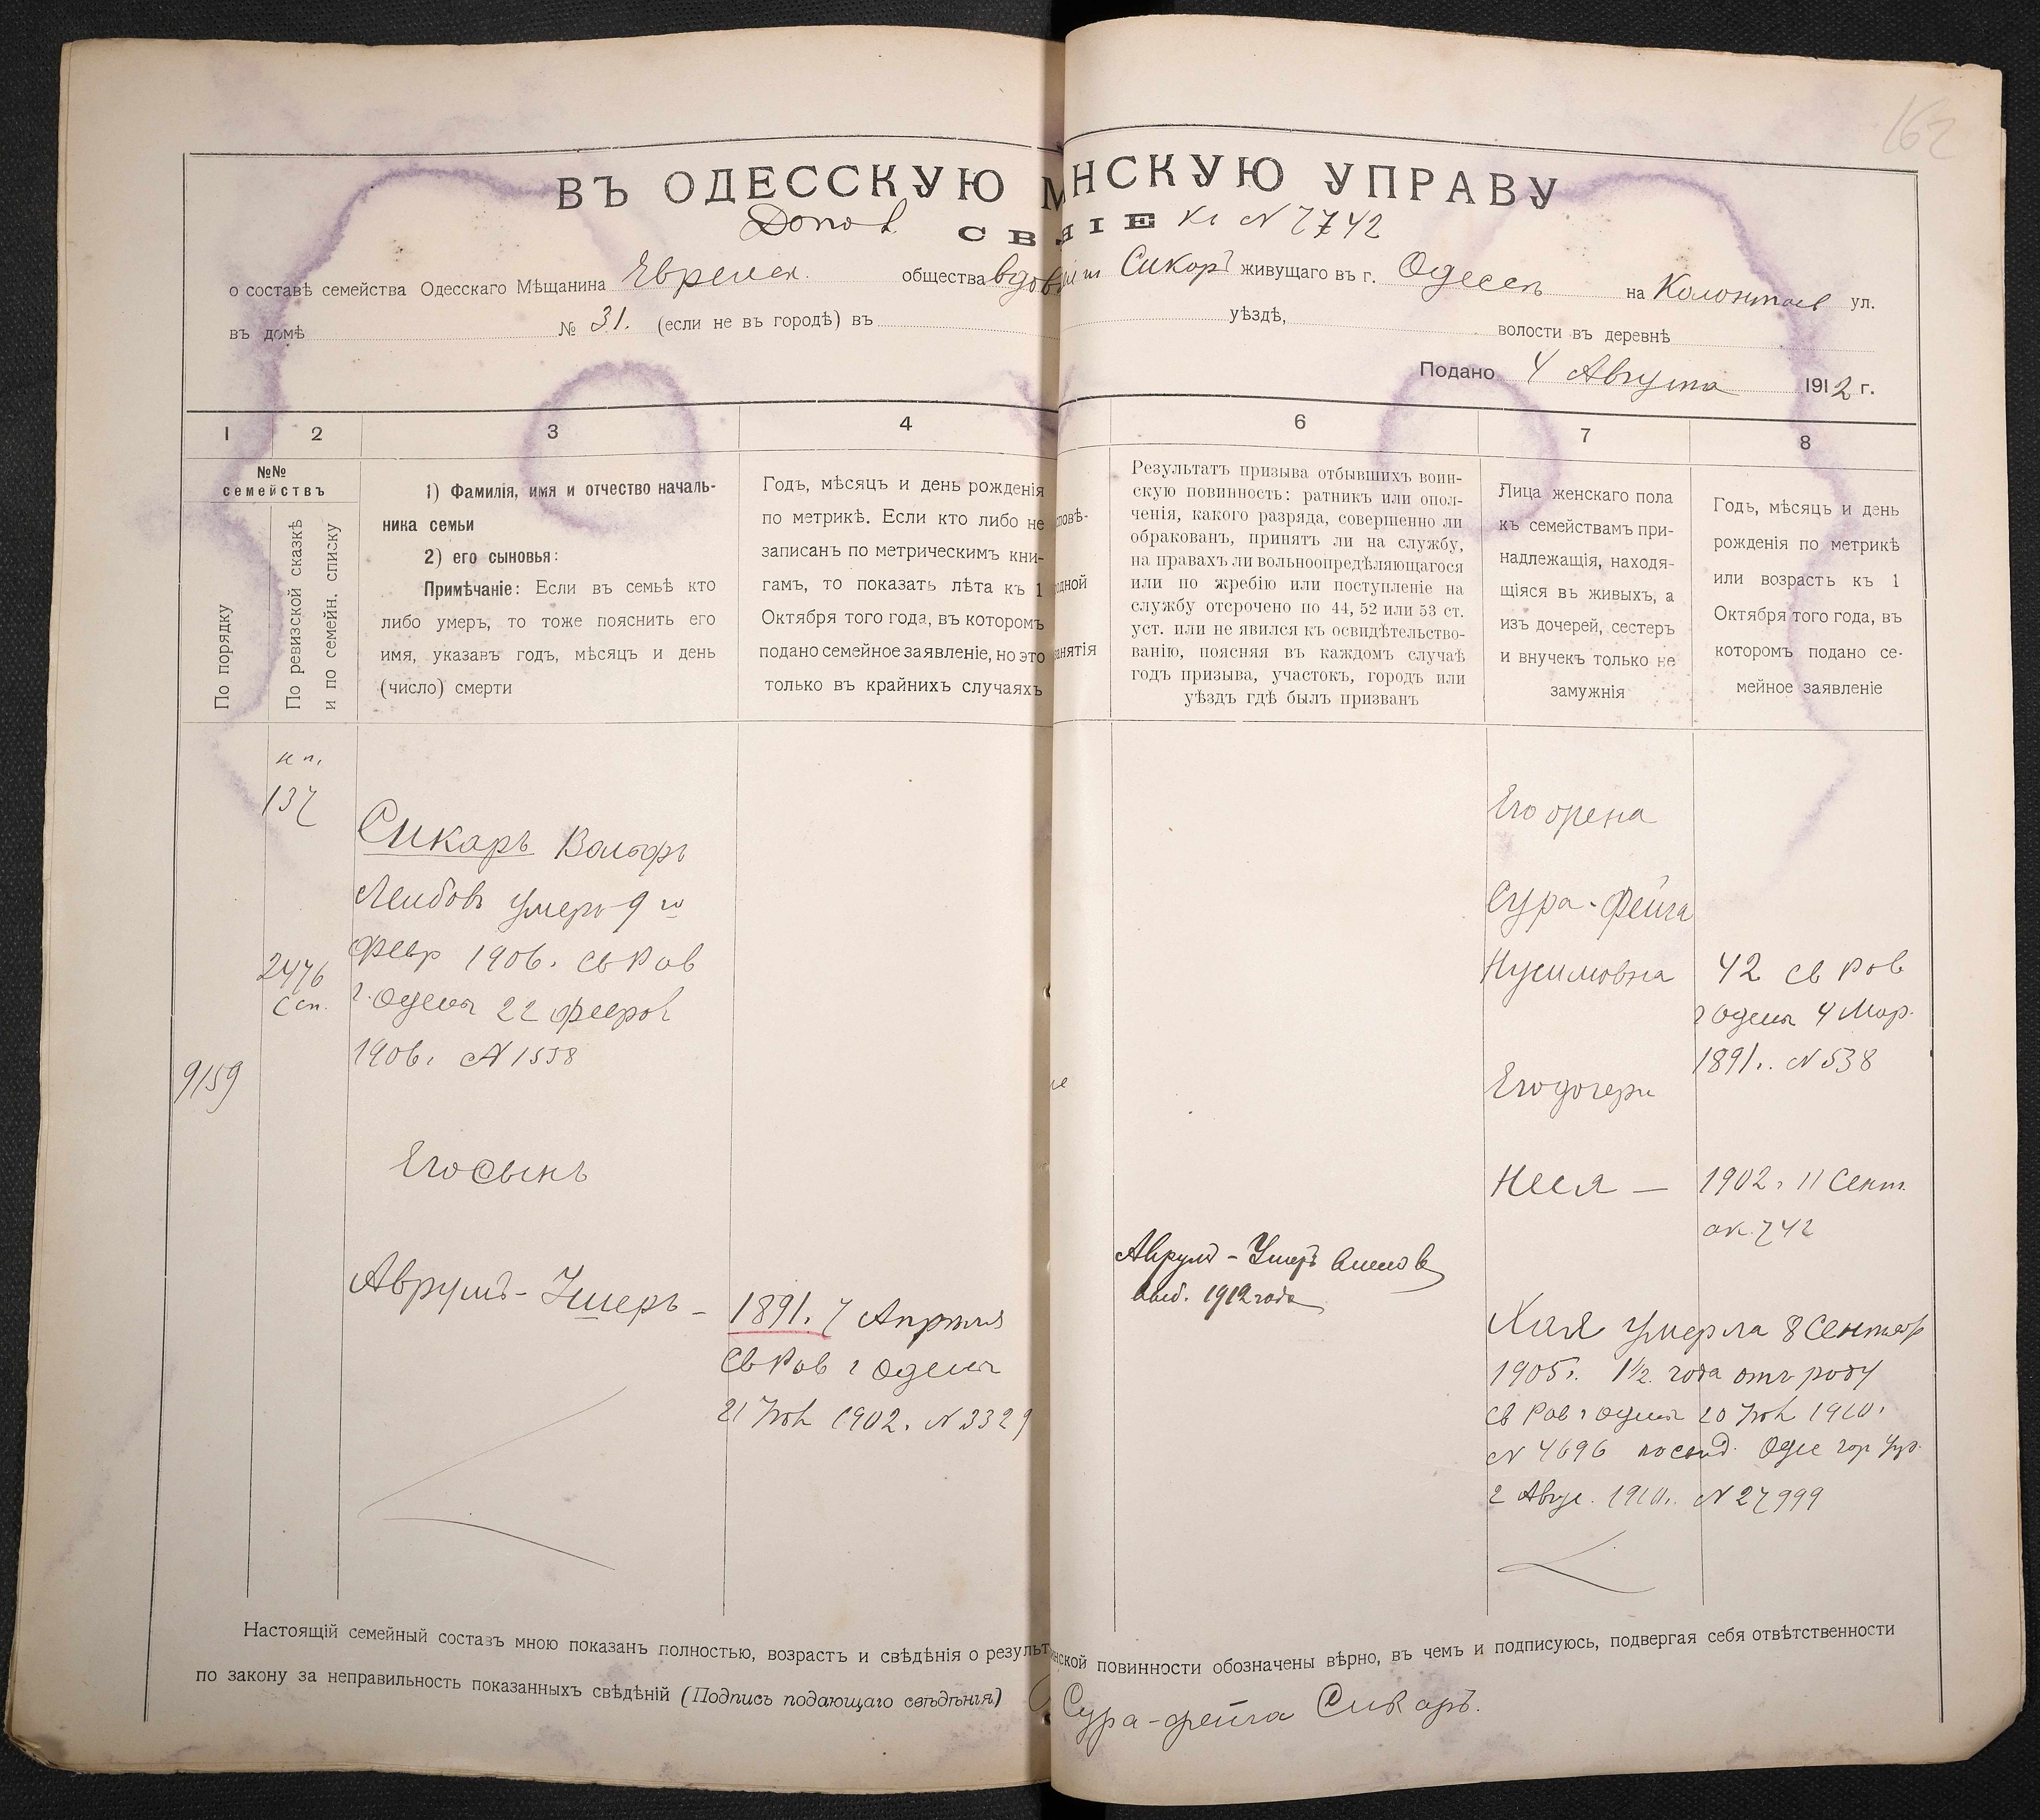 162
ВЪ ОДЕССКУЮ М НСКУЮ УПРАВУ
Допов. СВ НІЕ къ N 7742
о составѣ семейства Одесскаго Мѣщанина Еврейск. общества вдов Сикоръ живущаго въ г. Одессѣ на Колонтаев ул.
въ домѣ № 31. (если не въ городѣ) въ уѣздѣ, волости въ деревнѣ
Подано 4 Августа 1912 г.
1 2 3 4 6 7 8
№№
семействъ
По порядку
По ревизской сказкѣ
и по семейн. списку
1) Фамилія, имя и отчество началь-
ника семьи
2) его сыновья:
Примѣчаніе: Если въ семьѣ кто
либо умеръ, то тоже пояснить его
имя, указавъ годъ, мѣсяцъ и день
(число) смерти
Годъ, мѣсяцъ и день рожденія
по метрикѣ. Если кто либо не
записанъ по метрическимъ кни-
гамъ, то показать лѣта къ 1
Октября того года, въ которомъ
подано семейное заявленіе, но это
только въ крайнихъ случаяхъ
повѣ-
одной
анятія
Результатъ призыва отбывшихъ воин-
скую повинность: ратникъ или опол-
ченія, какого разряда, совершенно ли
обракованъ, принятъ ли на службу,
на правахъ ли вольноопредѣляющагося
или по жребію или поступленіе на
службу отсрочено по 44, 52 или 53 ст.
уст. или не явился къ освидѣтельство-
ванію, поясняя въ каждомъ случаѣ
годъ призыва, участокъ, городъ или
уѣздъ гдѣ былъ призванъ
Лица женскаго пола
къ семействамъ при-
надлежащія, находя-
щіяся въ живыхъ, а
изъ дочерей, сестеръ
и внучекъ только не
замужнія
Годъ, мѣсяцъ и день
рожденія по метрикѣ
или возрастъ къ 1
Октября того года, въ
которомъ подано се-
мейное заявленіе
9159
н п.
137
2476
с сп.
Сикаръ Вольфъ
Лейбовъ умеръ 9 го
Февр 1906. св Рав
г. Одессы 22 Феврал
1906. N 1558
Его Сынъ
Аврумъ-Ушеръ –
1891. 7 Апрѣля
св Рав г Одессы
21 Ноя 1902. N 3329
Аврумъ-Ушеръ
1912 года
Его жена
Сура-Фейга
Нусимовна
42 св Рав
г Одессы 4 Мар.
1891. N 538
Его дочери
Неся – 1902. 11 Сент.
ак. 742
Хая умерла 8 Сентябр
1905. 1½ года отъ роду
св Рав г Одессы 20 1910.
N 4696 Одес гор Упр.
2 Авгус. 1910. N 27999
Настоящій семейный составъ мною показанъ полностью, возрастъ и свѣдѣнія о результ нской повинности обозначены вѣрно, въ чемъ и подписуюсь, подвергая себя отвѣтственности
по закону за неправильность показанныхъ свѣдѣній (Подпись подающаго свѣдѣнія) Сура-Фейга Сикаръ.